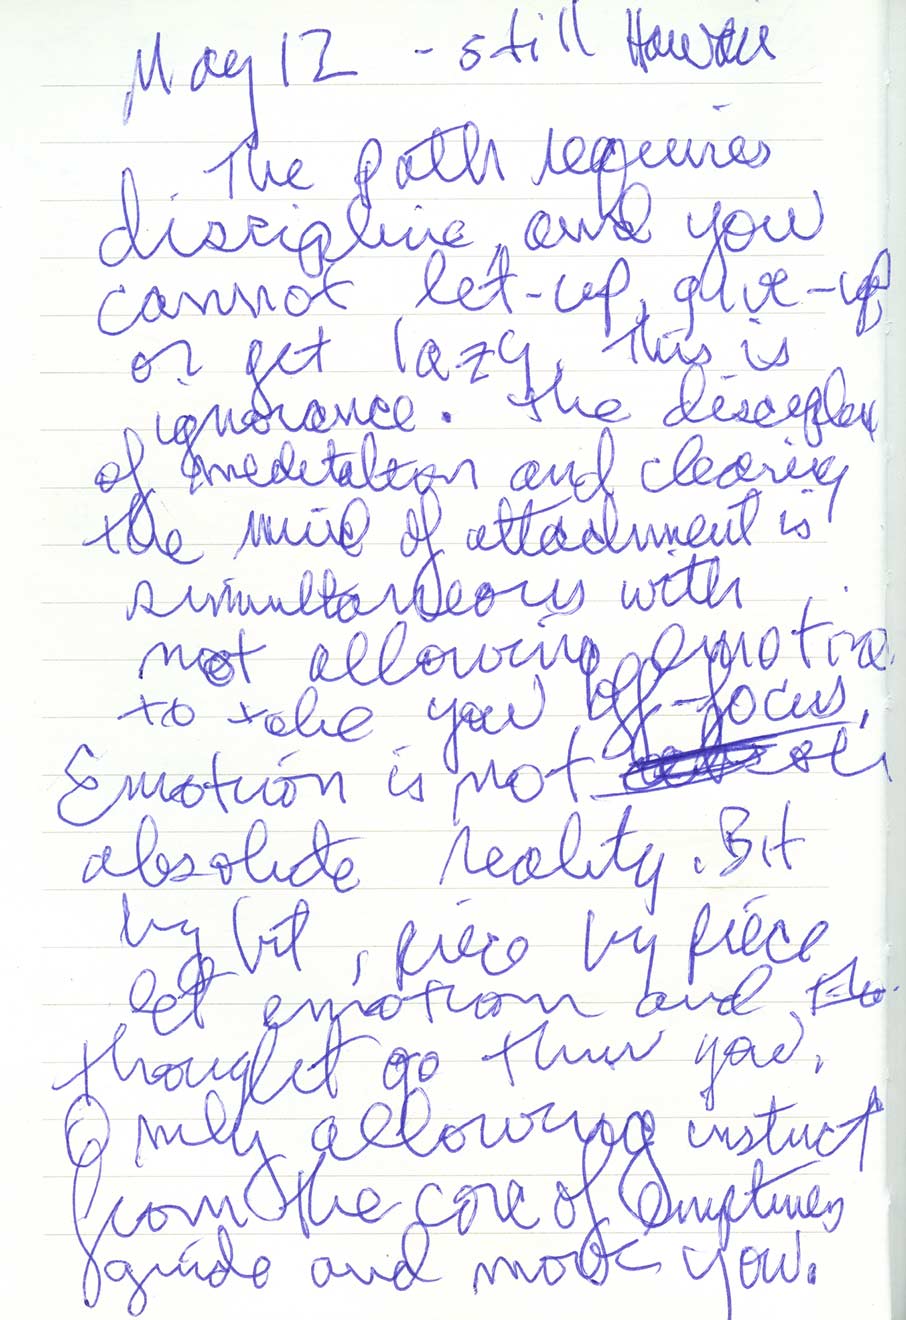 May 12 - still Hawaii
The path requires
discipline, and you
cannot let-up, give-up
or get lazy, this is
ignorance. The discipline
of meditation and clearing
the mind of attachment is
simultaneous with
not allowing emotion
to take you off-focus,
Emotion is not
absolute reality. Bit
by bit, piece by piece
let emotion and tho
thought go thru you.
Only allowing instinct
from the core of Emptiness
guide and move you.